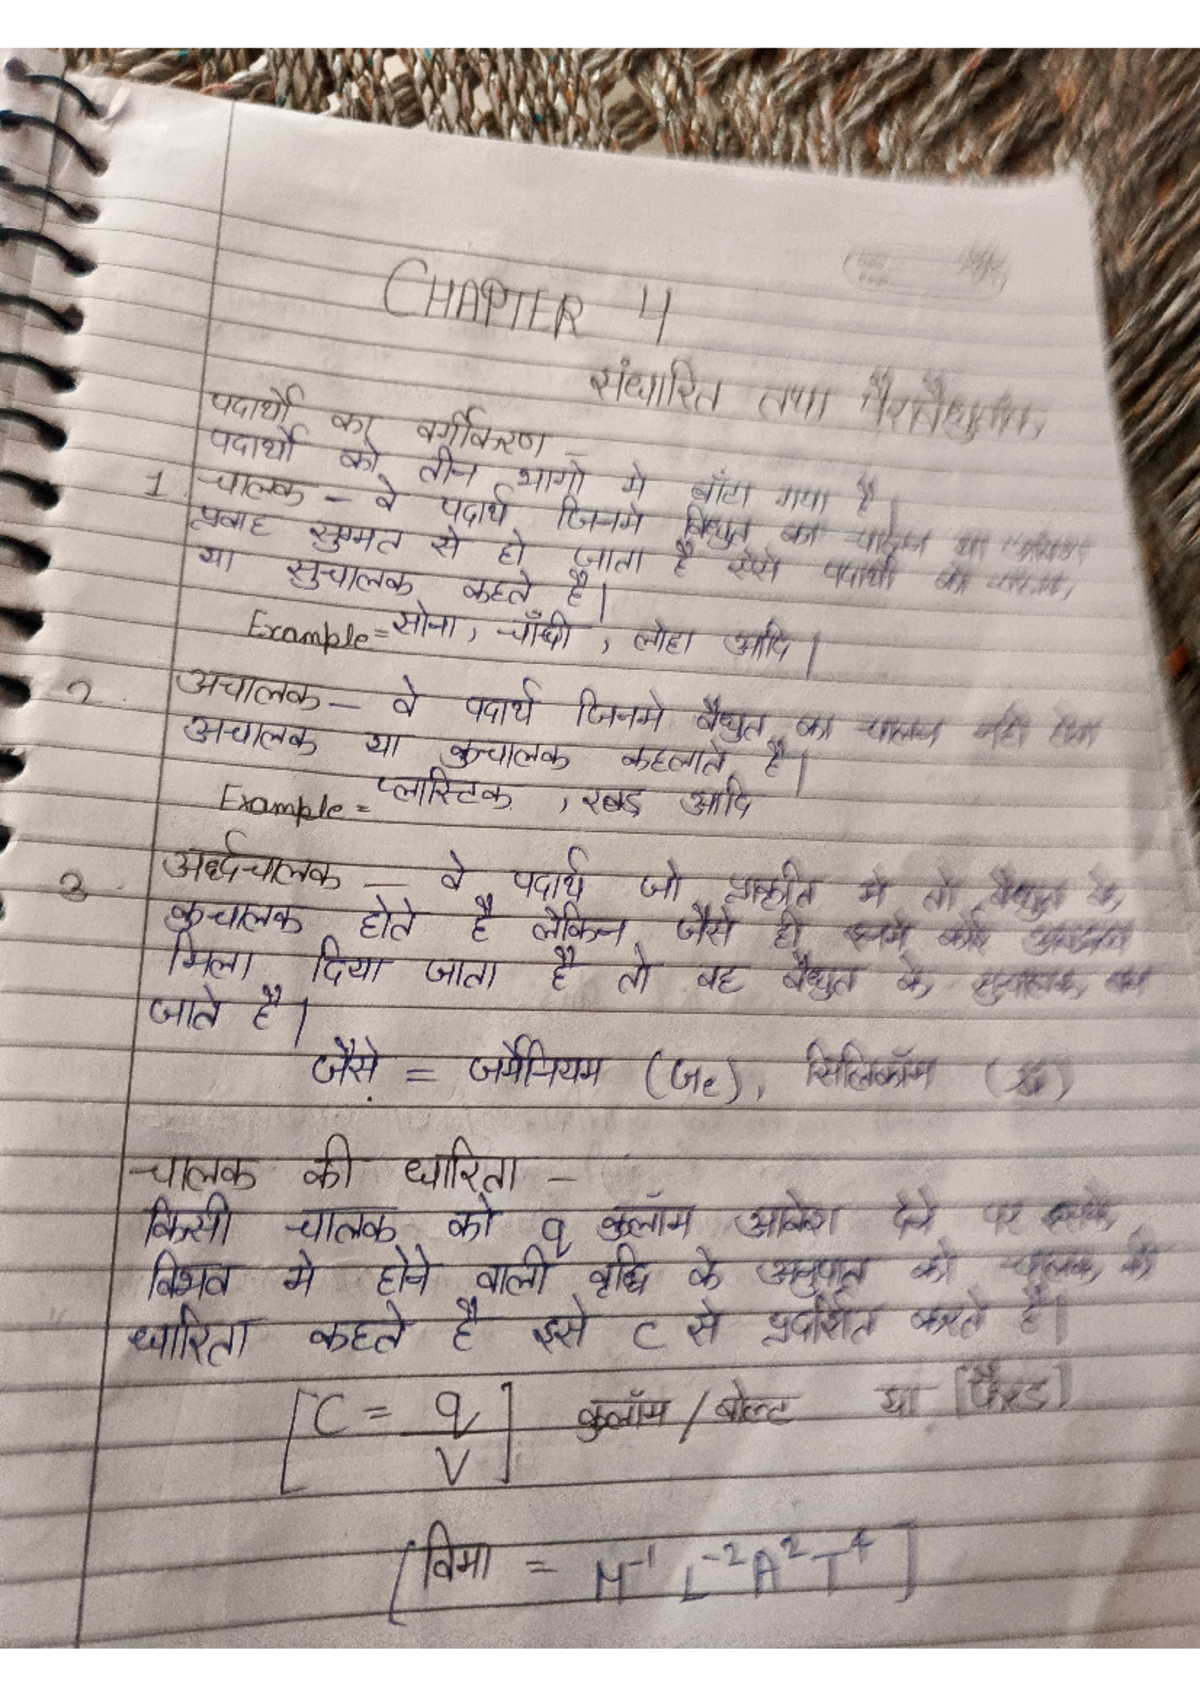 CHAPTER 4
संधारित तथा
पदार्थो का वर्गीकरण –
पदार्थो को तीन भागो मे बाँटा गया है।
1. चालक – वे पदार्थ जिनमे विधुत का चालन या
प्रवाह सुग्मत से हो जाता है ऐसे पदार्थो को
या सुचालक कहते है।
Example = सोना, चाँधी, लोहा आदि।
2. अचालक – वे पदार्थ जिनमे वैधुत का चालन नही होता
अचालक या कुचालक कहलाते है।
Example = प्लास्टिक, रबड आदि
3. अर्ध्दचालक – वे पदार्थ जो प्राकृति मे तो वैधुत के
कुचालक होते है लेकिन जैसे ही इनमे कोई
मिला दिया जाता है तो वह वैधुत के सुचालक बन
जाते है।
जैसे = जर्मेनियम (Ge), सिलिकॉम
चालक की धारिता –
किसी चालक को q कुलॉम आवेश देने पर उसके
विभव मे होने वाली वृध्दि के अनुपात को चालक की
धारिता कहते है इसे C से प्रदर्शित करते है।
[C = q/V] कुलॉम/बोल्ट या [फैरड]
[विमा = M⁻¹ L⁻² A² T⁴]